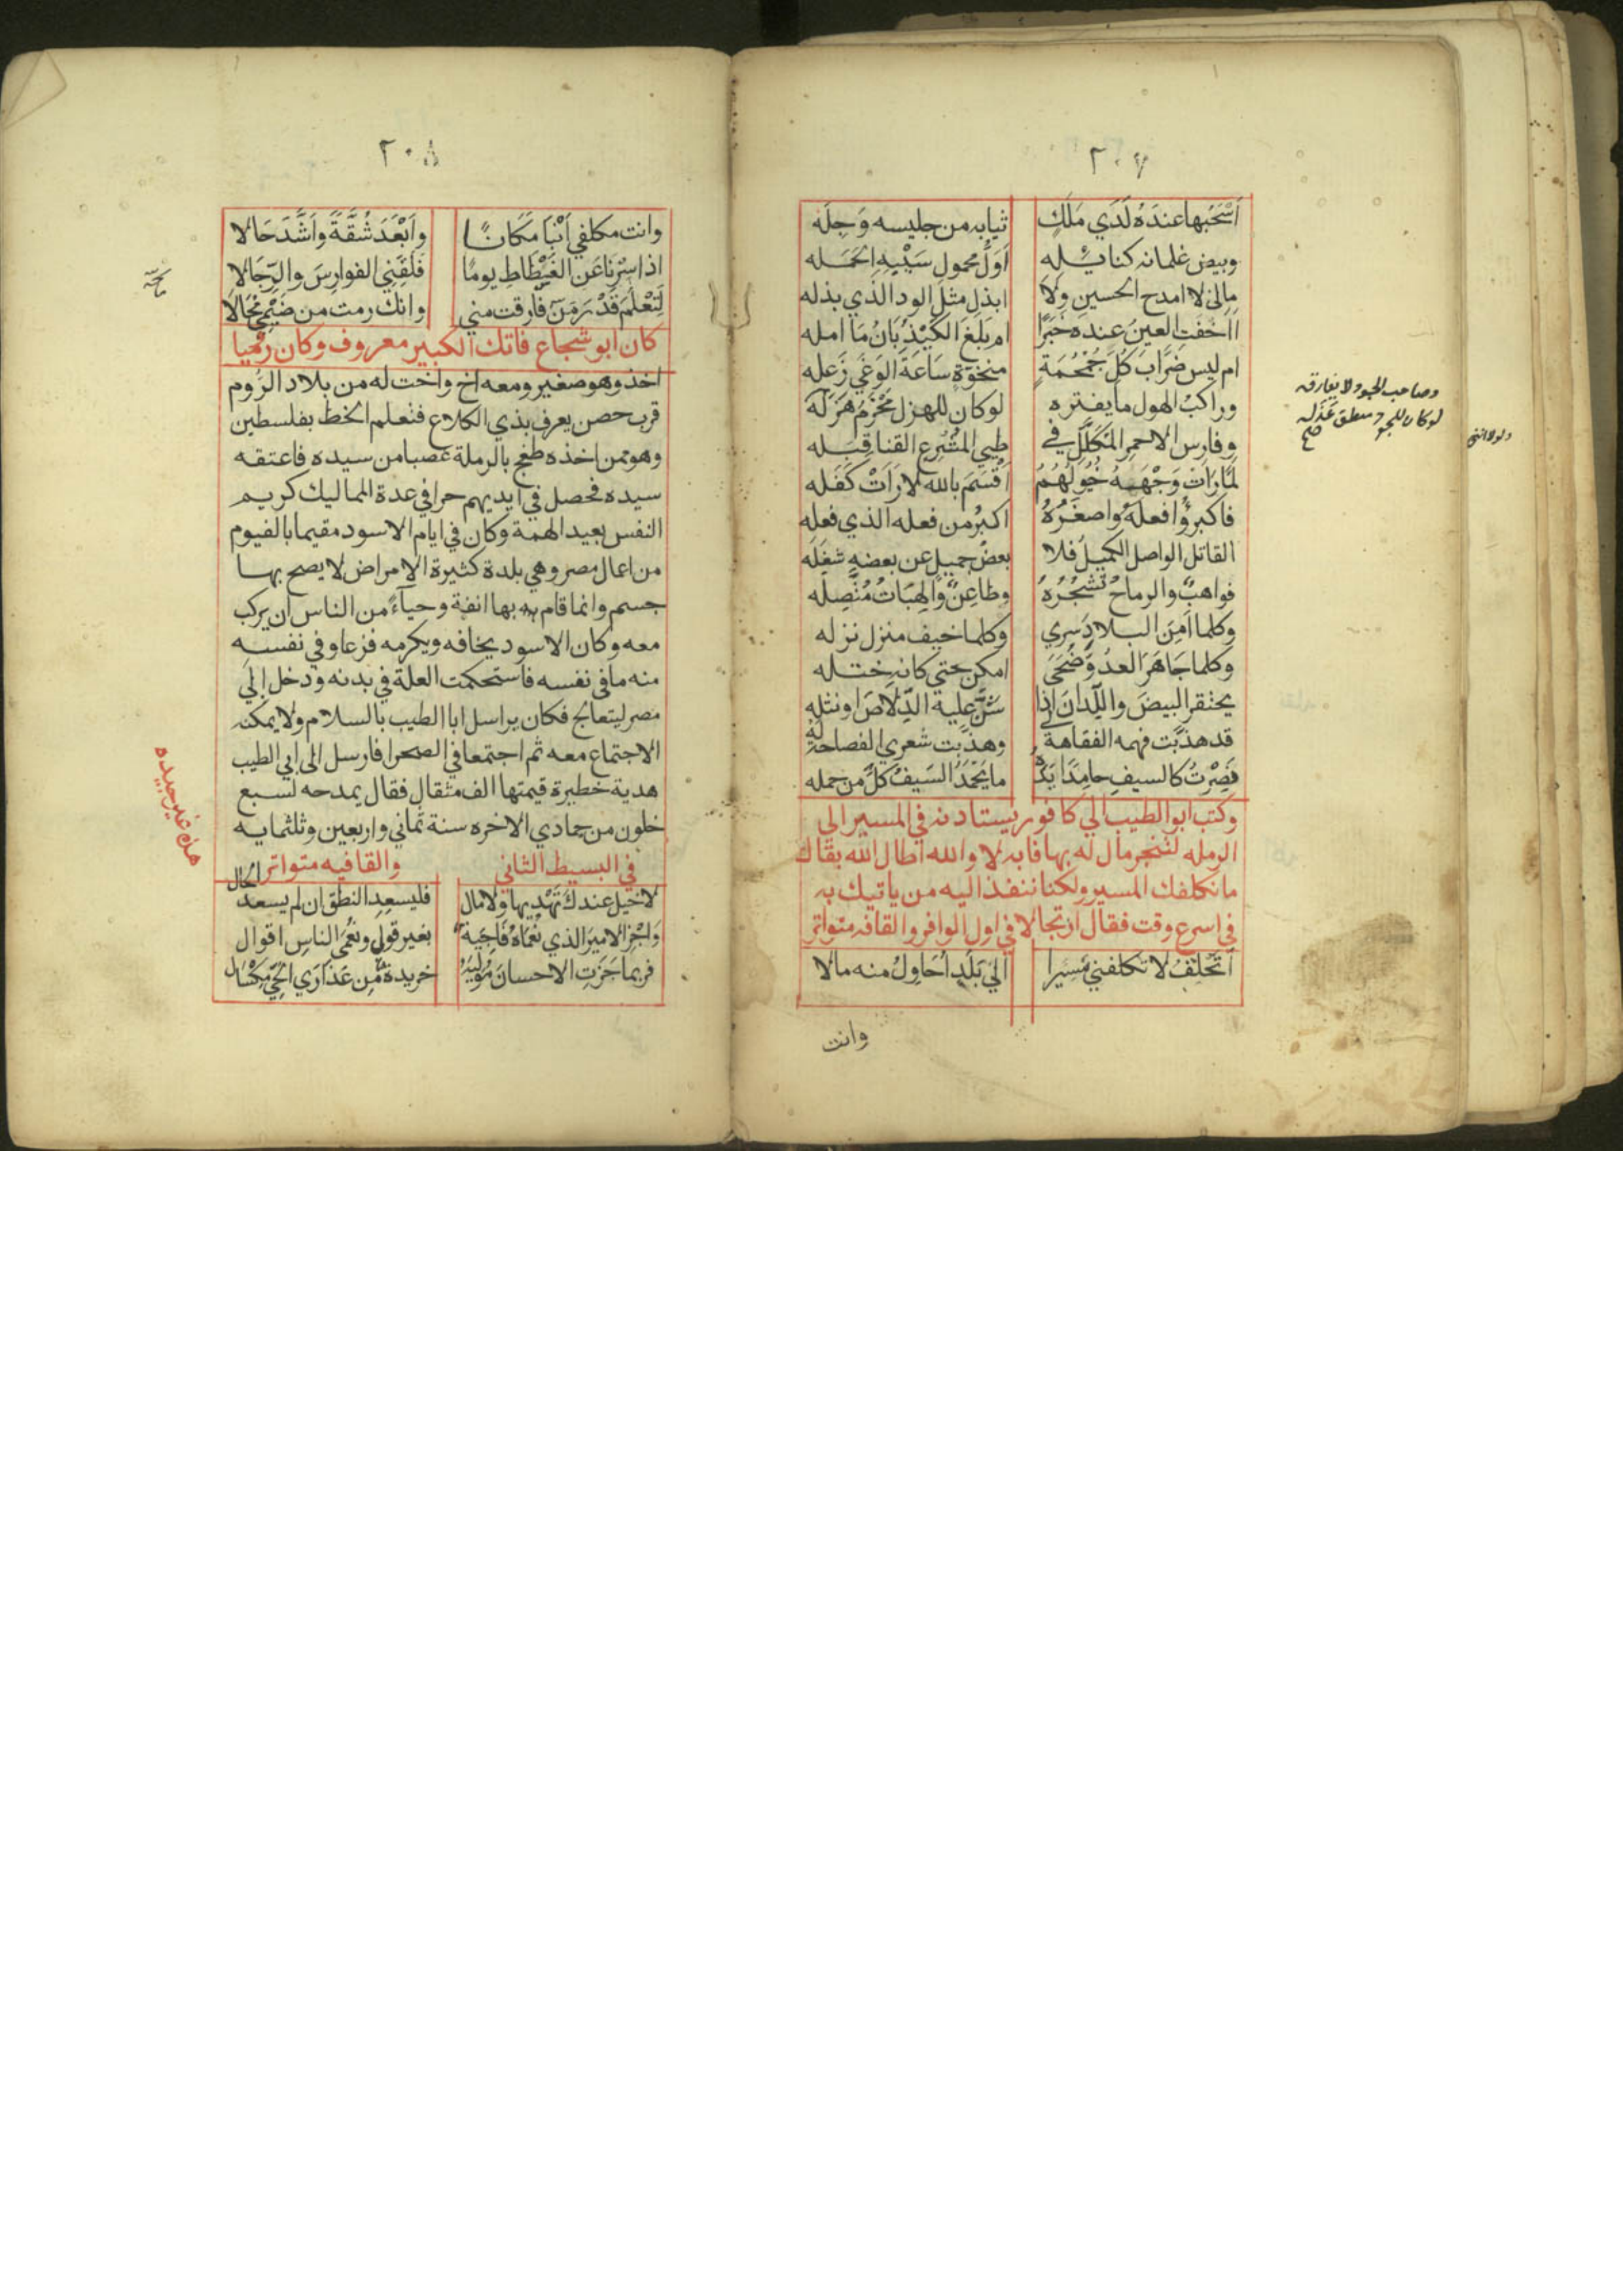 ٢٠٧
اَسْحَبُها عندَهُ لَدَي مَلَكٍ ثيابه من جليسه وَجِلَه
وبيض غلمانه كنائله اَوَلُ محمول سَيْبِهِ الحَمَله
مالى لا امدح الحسين ولا ابذل مثل الود الذي بذله
ااخفَتِ العينُ عنده خَبَرًا ام بَلَغَ الكَيْذُبَانُ مَا امله
ام ليس ضَرَّابَ كُلَّ جُمْجُمَةٍ منخوّة سَاعَةَ الوَغَي زَعِلِه
وراكبُ الهول ما يفتره لوكان للهزل مَحْزَمٌ هَزَلَه
وفارس الاحمر المُكَلَّلُ في طيي المشرع القنا قِبَله
لمَّا رَاَتْ وَجْهَهُ خُيُولُهُمُ اَقْسَمَ بالله لارَاَتْ كَفَله
فاكبرُوُا فعلَهُ واصغَرُهُ اكبرُ من فعله الذي فعله
القاتل الواصل الكميلُ فلا بعضُ جميلٍ عن بعضهِ شَغَلَه
فواهبٌ والرماحُ تَشجُرُهُ وطاعِنٌ والهِبَاتُ مُتَّصِلَه
وكلما اَمِنَ البلادَ سري وكلما خيف منزل نزله
وكلما جَاهَرَ العدُوَّ ضُحَى امكن حتي كانه ختله
يحتقر البيضَ واللِّدانَ اذا شَنَّ عليه الدِّلاَصَ اونثله
قد هذَّبَت فهمه الفقاهة لي وهذَّبت شعري الفصاحة له
فَصِرْتُ كالسيفِ حامِدًا يَدَهُ ما يَحْمَدُ السَيفُ كلَّ من حمله
وكتب ابو الطيب الي كافور يستاذنه في المسير الي
الرمله لتنجز مال له بها فابه لا والله اطال الله بقاك
مانكلفك المسير ولكنا ننفذ اليه من ياتيك به
في اسرع وقت فقال ارتجالا في اول الوافر والقافه متواتر
اتَحْلِفُ لا تكلفني مَسِيرا اليَ بَلَدٍ اُحَاوِلُ منه مالا
وانت
وصاحب الجود لا يفارقه
لوكان للجود منطق عَذَله
صح
٢٠٨
وانت مكلفي اَنْبَا مَكَانًا واَبْعَدَ شُقَّةً واَشَّدَ حَالا
اذا سِرْنا عَنِ الفَسْطاطِ يومًا فَلَقِّنِي الفوارِسَ والرِّجَالا
لِتَعْلَمَ قَدْرَ مَنْ فارقت مني وانك رمت من ضَيْمِي مُحَالَا
كان ابو شجاع فاتك الكبير معروف وكان روميا
اخذ وهو صغير ومعه اخ واخت له من بلاد الرُوم
قرب حصن يعرف بذي الكلاع فتعلم الخط بفلسطين
وهو ممن اخذه طغج بالرملة غصبا من سيده فاعتقه
سيده فحصل في ايديهم حرا في عدة المماليك كريم
النفس بعيد الهمة وكان في ايام الاسود مقيما بالفيوم
من اعمال مصر وهي بلدة كثيرة الامراض لا يصح بها
جسم وانما قام بها انفة وحياءً من الناس ان يركب
معه وكان الاسود يخافه ويكرمه فزعا وفي نفسه
منه مافى نفسه فاستحكمت العلة في بدنه ودخل إلي
مصر ليتعالج فكان يراسل ابا الطيب بالسلام ولا يمكنه
الاجتماع معه ثم اجتمعا في الصحرا فارسل الى ابي الطيب
هدية خطيرة قيمتها الف مثقال فقال يمدحه لسبع
خلون من جمادي الاخره سنة ثماني واربعين وثلثمايه
في البسيط الثاني والقافيه متواتر
لا خيل عندكَ تَهْدِيها ولا مال فليسعِدِ النطق ان لم يسعد الحال
وَاجْزِ الاميرَ الذي نُعْمَاهُ فَاجِيَة بغير قول ونُعْمَى الناسِ اقوال
فربما جَزَتِ الاحسانَ مُوْلِيَهُ خريدةٌ مِن عَذَارَي الحَيِّ مِكْسَال
هذه غير جيده